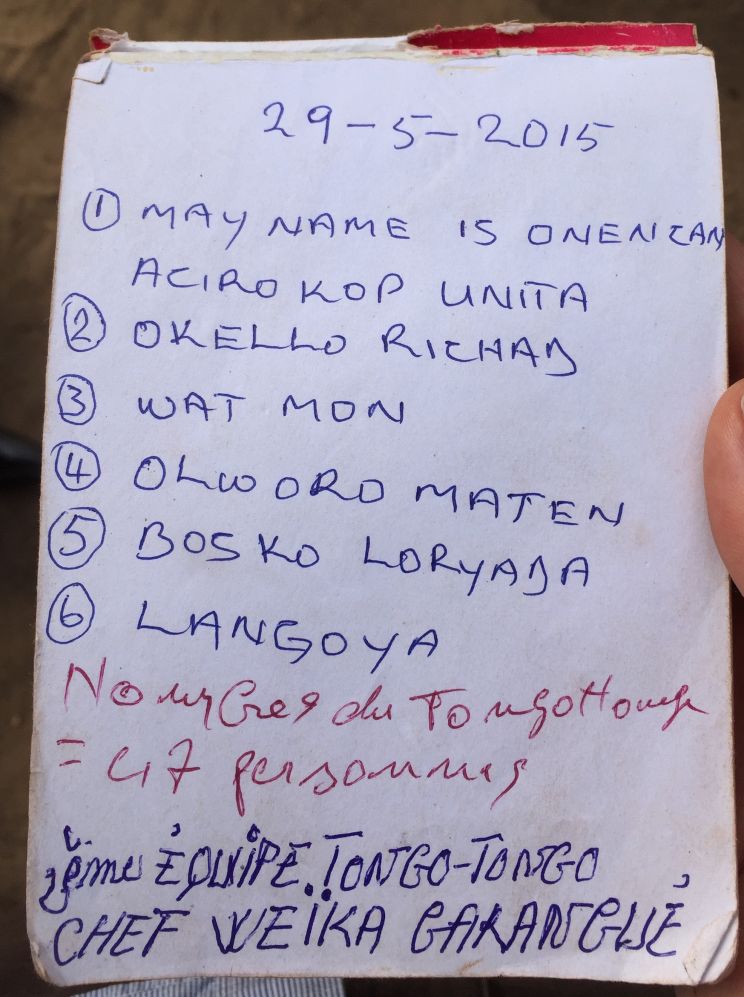 29-5-2015
① MAY NAME IS ONENCAN
ACIRO KOP UNITA
② OKELLO RICHAD
③ WAT MON
④ OLWORO MATEN
⑤ BOSKO LORYADA
⑥ LANGOYA
Nombres du
= 47 personnes
2ème ÉQUIPE. TONGO-TONGO
CHEF WEÏKA GARANGUÉ